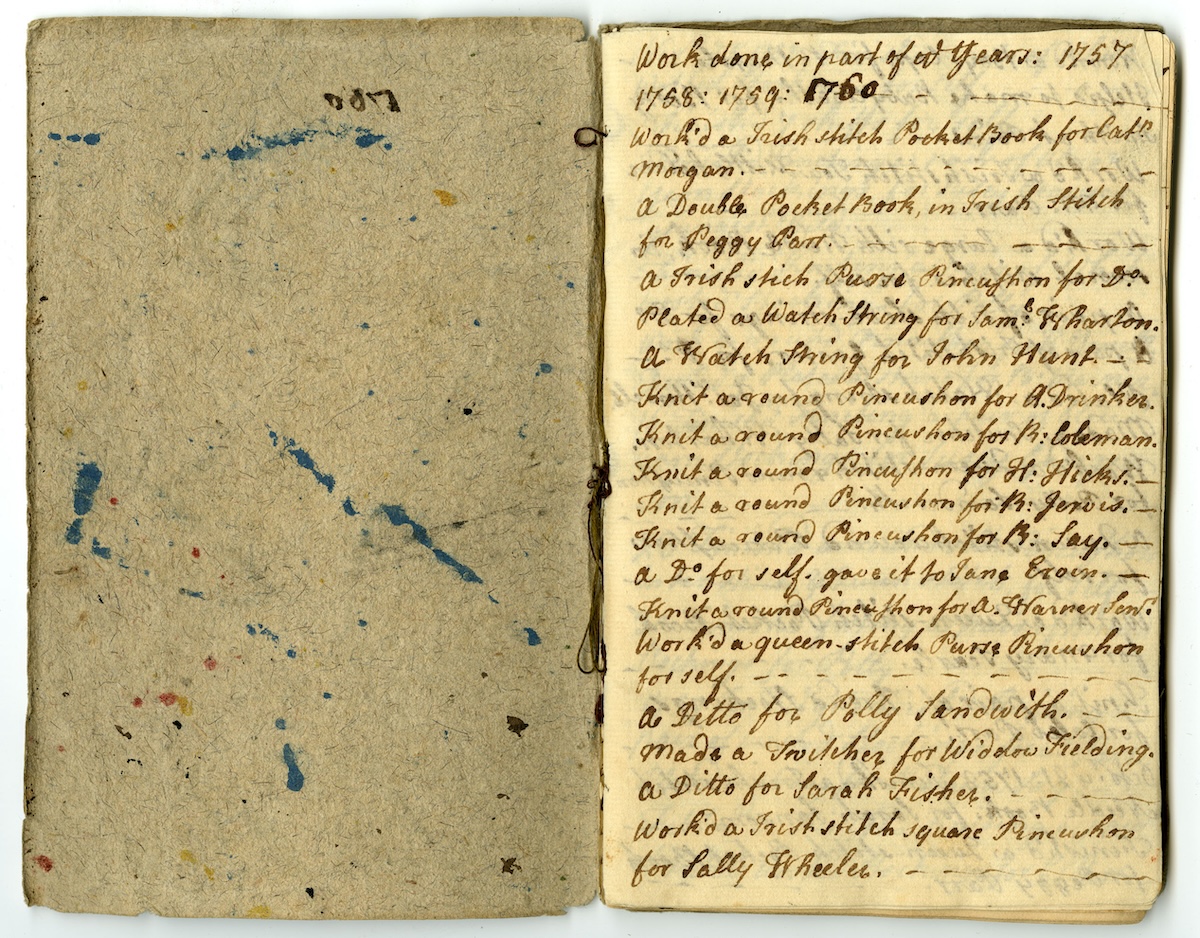 1760
Work done in part of ye Years: 1757
1758: 1759: 1760
Work'd a Irish stitch Pocket Book for Catn
Morgan. — —
a Double Pocket Book, in Irish Stitch
for Peggy Parr. — — — —
a Irish stich Purse Pincushon for Do.
Plated a Watch String for Saml. Wharton.
a Watch String for John Hunt. — -
Knit a round Pincushon for A. Drinker.
Knit a round Pincushon for R: Coleman.
Knit a round Pincushon for H: Hicks. —
Knit a round Pincushon for R: Jervis. —
Knit a round Pincushon for R: Say. —
a Do. for self. gave it to Jane Ervin. —
Knit a round Pincushon for A. Warner Senr.
Work'd a queen-stitch Purse Pincushon
for self. - - - - - - - - -
a Ditto for Polly Sandwith. - - -
made a Twitcher for Widdow Fielding.
a Ditto for Sarah Fisher. - — —
Work'd a Irish stitch square Pincushon
for Sally Wheeler. - — — — —